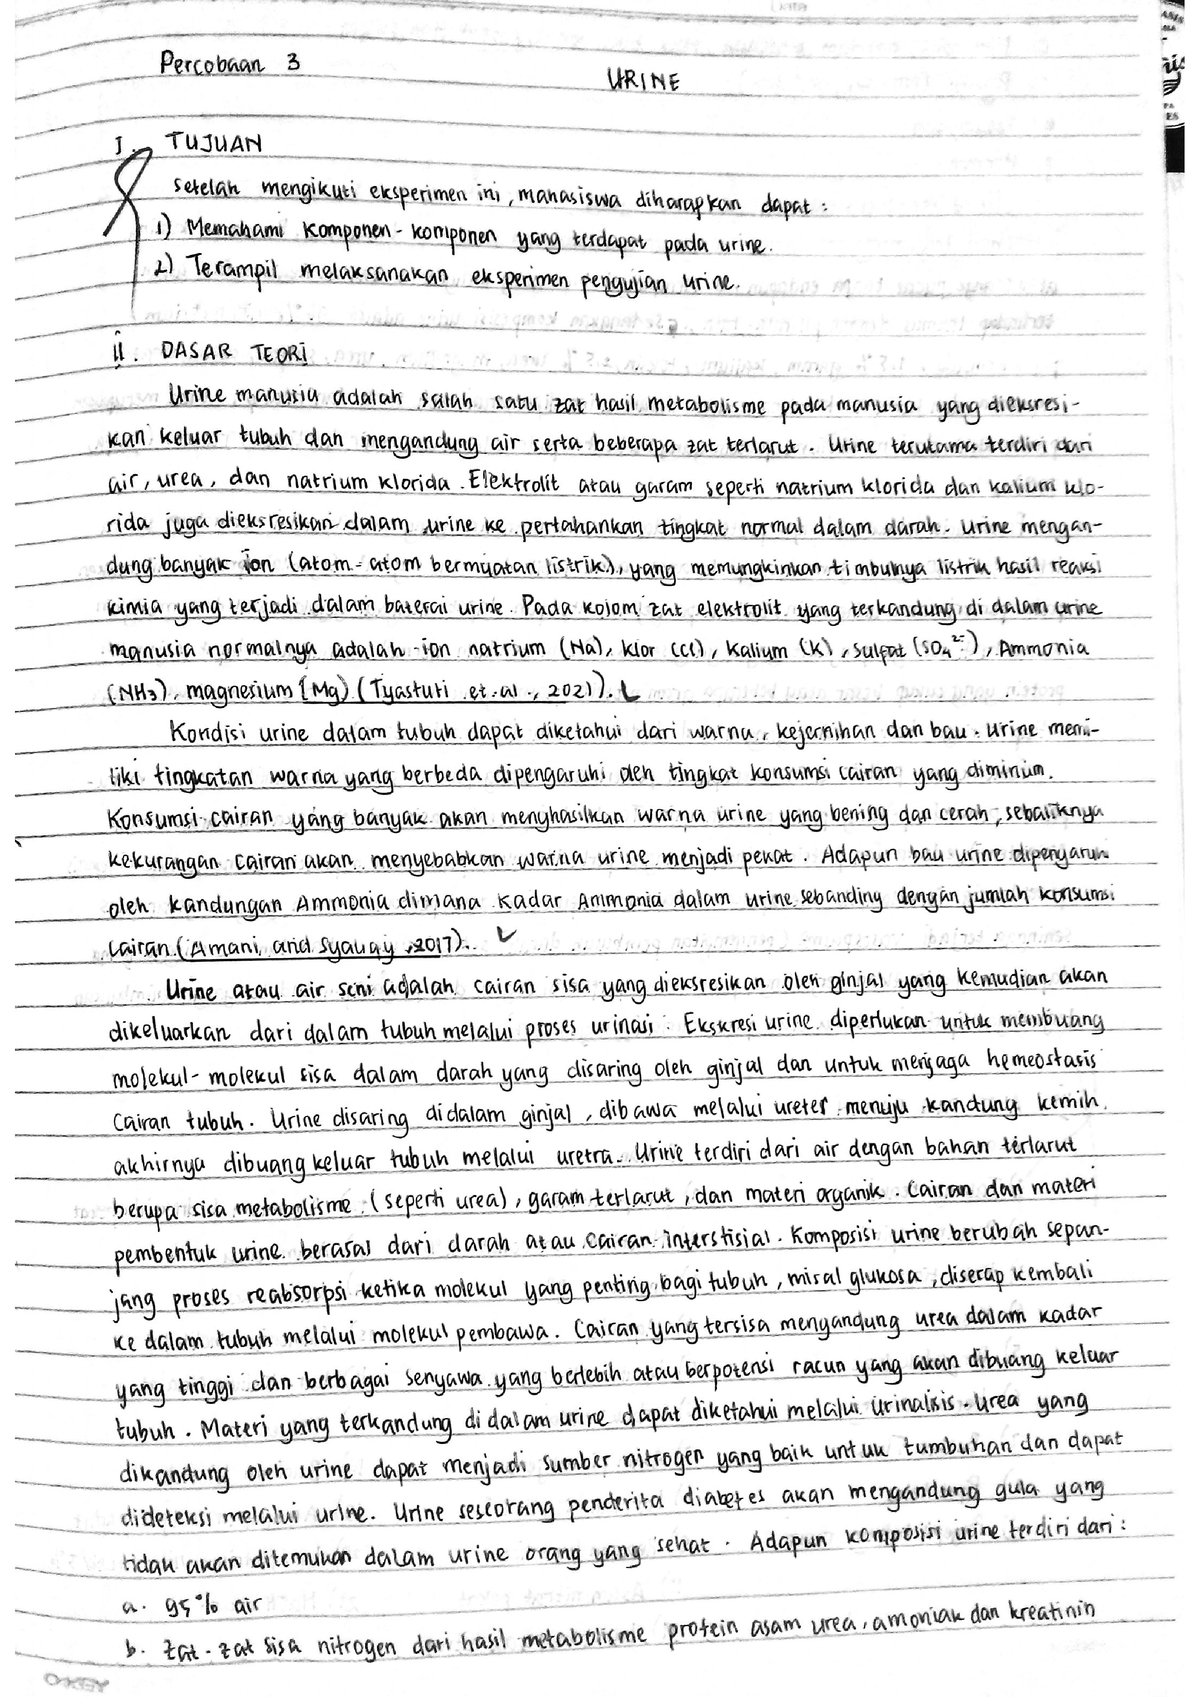 Percobaan 3
URINE
I. TUJUAN
Setelah mengikuti eksperimen ini, mahasiswa diharapkan dapat :
1) Memahami komponen-komponen yang terdapat pada urine.
2) Terampil melaksanakan eksperimen pengujian urine.
II. DASAR TEORI
Urine manusia adalah salah satu zat hasil metabolisme pada manusia yang dieksresi-
kan keluar tubuh dan mengandung air serta beberapa zat terlarut. Urine terutama terdiri dari
air, urea, dan natrium klorida. Elektrolit atau garam seperti natrium klorida dan kalium klo-
rida juga dieksresikan dalam urine ke pertahankan tingkat normal dalam darah. Urine mengan-
dung banyak ion (atom-atom bermuatan listrik), yang memungkinkan timbulnya listrik hasil reaksi
kimia yang terjadi dalam baterai urine. Pada kolom zat elektrolit yang terkandung di dalam urine
manusia normalnya adalah ion natrium (Na), klor (Cl), Kalium (K), Sulfat (SO₄²⁻), Ammonia
(NH₃), magnesium (Mg) (Tyastuti et.al., 2021).
Kondisi urine dalam tubuh dapat diketahui dari warna, kejernihan dan bau. Urine memi-
liki tingkatan warna yang berbeda dipengaruhi oleh tingkat konsumsi cairan yang diminum.
Konsumsi cairan yang banyak akan menghasilkan warna urine yang bening dan cerah, sebaliknya
kekurangan cairan akan menyebabkan warna urine menjadi pekat. Adapun bau urine dipengaruh
oleh kandungan Ammonia dimana kadar Ammonia dalam urine sebanding dengan jumlah konsumsi
cairan (Amani, and Syauqy, 2017).
Urine atau air seni adalah cairan sisa yang dieksresikan oleh ginjal yang kemudian akan
dikeluarkan dari dalam tubuh melalui proses urinasi. Ekskresi urine diperlukan untuk membuang
molekul-molekul sisa dalam darah yang disaring oleh ginjal dan untuk menjaga hemeostasis
cairan tubuh. Urine disaring didalam ginjal, dibawa melalui ureter menuju kandung kemih,
akhirnya dibuang keluar tubuh melalui uretra. Urine terdiri dari air dengan bahan terlarut
berupa sisa metabolisme (seperti urea), garam terlarut, dan materi organik. Cairan dan materi
pembentuk urine berasal dari darah atau cairan interstisial. Komposisi urine berubah sepan-
jang proses reabsorpsi ketika molekul yang penting bagi tubuh, misal glukosa, diserap kembali
ke dalam tubuh melalui molekul pembawa. Cairan yang tersisa mengandung urea dalam kadar
yang tinggi dan berbagai senyawa yang berlebih atau berpotensi racun yang akan dibuang keluar
tubuh. Materi yang terkandung di dalam urine dapat diketahui melalui urinalisis. Urea yang
dikandung oleh urine dapat menjadi sumber nitrogen yang baik untuk tumbuhan dan dapat
dideteksi melalui urine. Urine seseorang penderita diabetes akan mengandung gula yang
tidak akan ditemukan dalam urine orang yang sehat. Adapun komposisi urine terdiri dari :
a. 95% air
b. Zat-zat sisa nitrogen dari hasil metabolisme protein asam urea, amoniak dan kreatinin